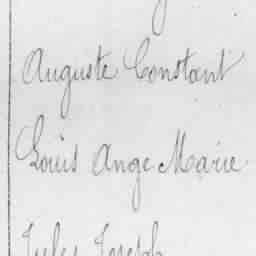 Auguste Constant
Louis Ange Marie
Jules Joseph